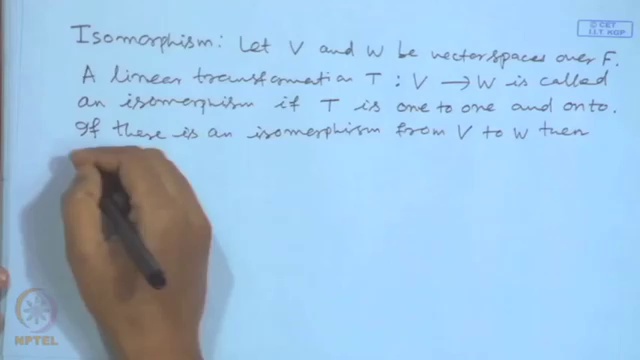 © CET
I.I.T. KGP
Isomorphism: Let V and W be vector spaces over F.
A linear transformation T : V → W is called
an isomorphism if T is one to one and onto.
If there is an isomorphism from V to W then
NPTEL